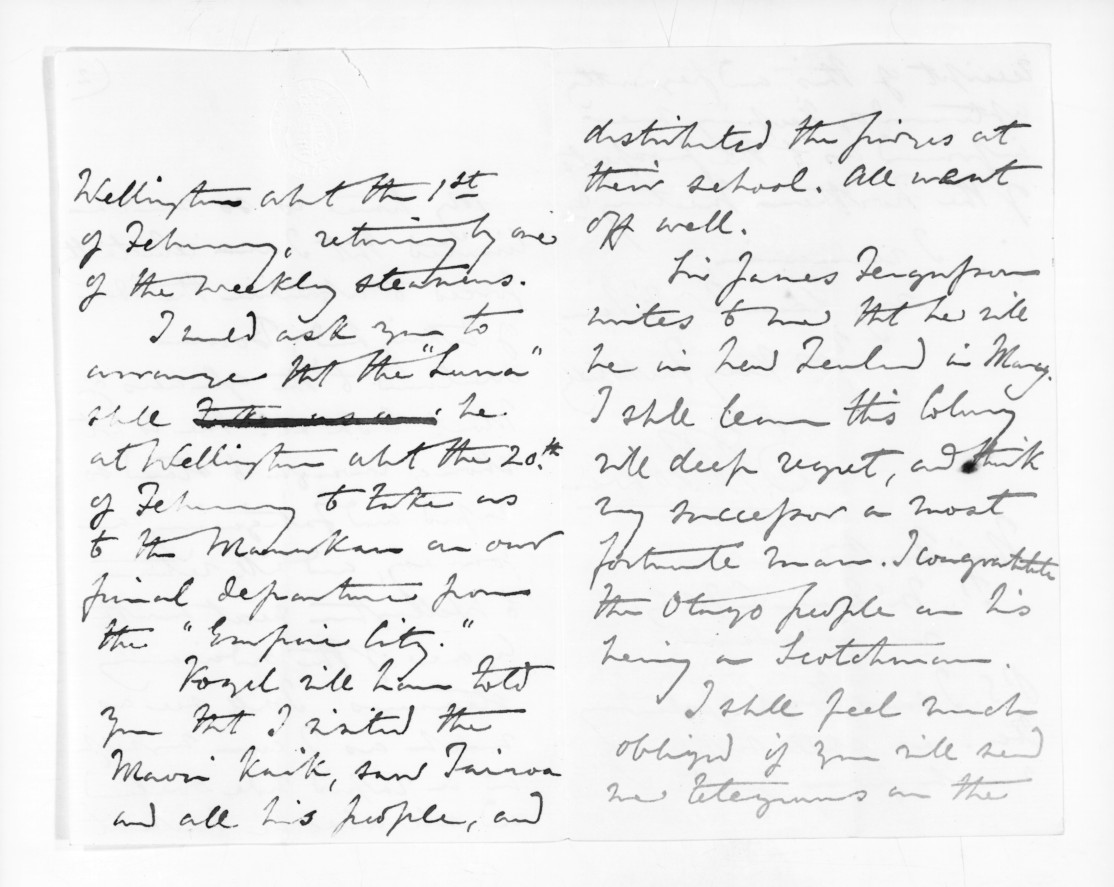 Wellington abt the 1st
of February, returning by one
of the weekly steamers.
I would ask you to
arrange tht the "Luna"
shll be
at Wellington abt the 20.th
of February to take us
to the Manukau on our
final departure from
the "Empire City."
Vogel will have told
you tht I visited the
Maori Kaik, saw Tairoa
and all his people, and
distributed the prizes at
their school. All went
off well.
Sir James Fergusson
writes to me tht he will
be in New Zealand in March.
I shll leave this Colony
with deep regret, and think
my successor a most
fortunate man. I congratulate
the Otago people on his
being a Scotchman.
I shll feel much
obliged if you will send
me telegrams on the